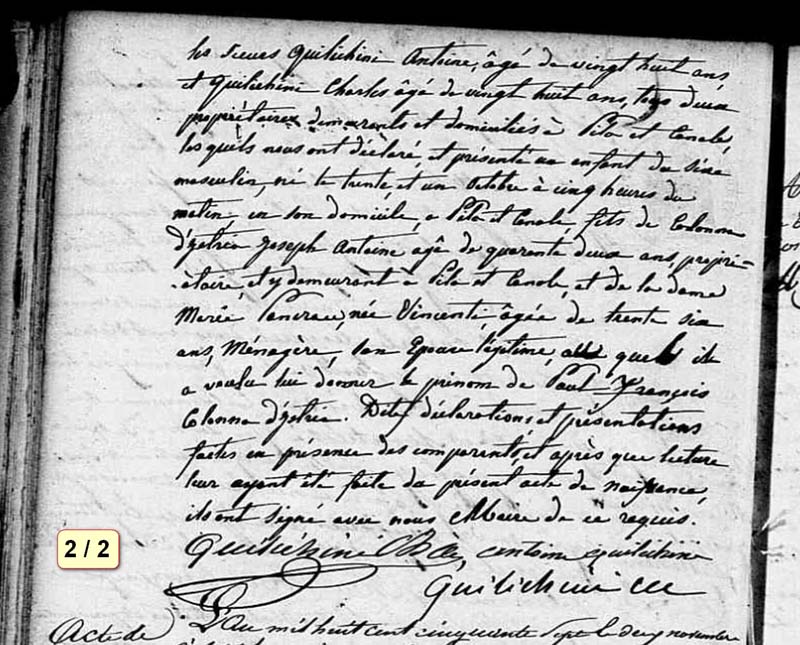 les sieurs Quilichini Antoine, âgé de vingt huit ans
et Quilichini Charles âgé de vingt huit ans, tous deux
propriétaires demeurants et domiciliés à Pila et Canale,
lesquels nous ont déclaré, et présenté un enfant du sexe
masculin, né le trente et un Octobre à cinq heures du
matin, en son domicile, a Pila et Canale, fils de Colonna
d'Istria Joseph Antoine agé de quarente deux ans, propri-
étaire, et y demeurant à Pila et Canale, et de la dame
Marie née Vincenti, âgée de trente six
ans, Ménagère, son Epouse légitime, quel il
a voulu lui donner le prénom de Paul-François
Colonna d'Istria. Dites déclarations et présentations
faites en présence des comparents, et après que lecture
leur ayant été faite du présent acte de naissance,
ils ont signé avec nous Maire de ce requis.
Quilichini antoine Quilichini
Quilichini
Acte de L'an mil huit cent cinquante sept le deux novembre
2 / 2